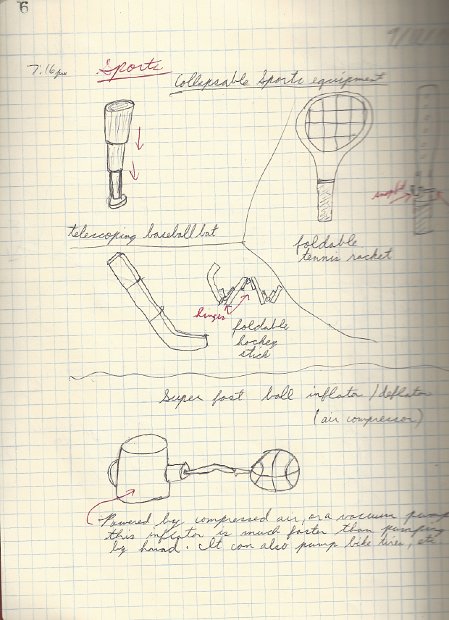 6
7:16pm
Sports
Collapsable Sports equipment
telescoping baseball bat
foldable
tennis racket
hinges
foldable
hockey
stick
Super fast ball inflator/deflator
(air compressor)
Powered by compressed air, or a vacuum pump
this inflator is much faster than pumping
by hand. It can also pump bike tires, etc.